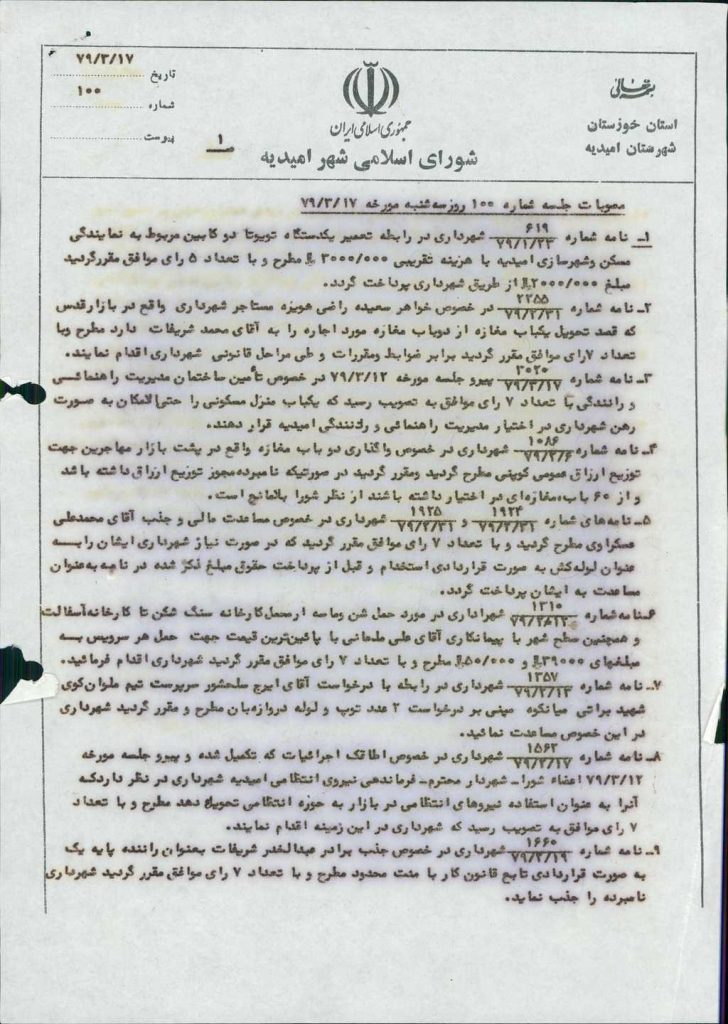 بسمه تعالی
استان خوزستان
شهرستان امیدیه
جمهوری اسلامی ایران
شورای اسلامی شهر امیدیه
تاریخ ۷۹/۳/۱۷
شماره ۱۰۰
پیوست
۱
مصوبات جلسه شماره ۱۰۰ روز سه شنبه مورخه ۷۹/۳/۱۷
۱ـ نامه شماره ۶۱۹ / ۷۹/۱/۲۳ شهرداری در رابطه تعمیر یکدستگاه تویوتا دو کابین مربوط به نمایندگی
مسکن وشهرسازی امیدیه با هزینه تقریبی ۳۰۰۰/۰۰۰ ریال مطرح و با تعداد ۵ رای موافق مقررگردید
مبلغ ۲۰۰۰/۰۰۰ ریال از طریق شهرداری پرداخت گردد.
۲ـ نامه شماره ۲۲۵۵ / ۷۹/۲/۳۱ در خصوص خواهر سعیده راضی هویزه مستاجر شهرداری واقع در بازارقدس
که قصد تحویل یکباب مغازه از دوباب مغازه مورد اجاره را به آقای محمد شریفات دارد مطرح وبا
تعداد ۷ رای موافق مقرر گردید برابر ضوابط ومقررات و طی مراحل قانونی شهرداری اقدام نمایند.
۳ـ نامه شماره ۳۰۲۰ / ۷۹/۳/۱۷ پیرو جلسه مورخه ۷۹/۳/۱۲ در خصوص تأمین ساختمان مدیریت راهنمائی
و رانندگی با تعداد ۷ رای موافق به تصویب رسید که یکباب منزل مسکونی را حتی الامکان به صورت
رهن شهرداری در اختیار مدیریت راهنمائی و رانندگی امیدیه قرار دهند.
۴ـ نامه شماره ۱۰۸۶ / ۷۹/۳/۶ شهرداری در خصوص واگذاری دو باب مغازه واقع در پشت بازار مهاجرین جهت
توزیع ارزاق عمومی کوپنی مطرح گردید ومقرر گردید در صورتیکه نامبرده مجوز توزیع ارزاق داشته باشد
و از ۶۰ باب مغازه‌ای در اختیار داشته باشند از نظر شورا بلامانع است.
۵ـ نامه‌های شماره ۱۹۲۴ / ۷۹/۲/۳۱ و ۱۹۲۵ / ۷۹/۲/۳۱ شهرداری در خصوص مساعدت مالی و جذب آقای محمدعلی
عسکراوی مطرح گردید و با تعداد ۷ رای موافق مقرر گردید که در صورت نیاز شهرداری ایشان را به
عنوان لوله کش به صورت قراردادی استخدام و قبل از پرداخت حقوق مبلغ ذکر شده در نامه به عنوان
مساعدت به ایشان پرداخت گردد.
۶ـ نامه شماره ۱۳۱۰ شهراداری در مورد حمل شن وماسه ازمحل کارخانه سنگ شکن تا کارخانه آسفالت
و همچنین سطح شهر با پیمانکاری آقای علی ملحانی با پائین‌ترین قیمت جهت حمل هر سرویس به
مبلغهای ۳۹۰۰۰ ریال و ۵۰/۰۰۰ ریال مطرح و با تعداد ۷ رای موافق مقرر گردید شهرداری اقدام فرمائید.
۷ـ نامه شماره ۱۳۵۷ / ۷۹/۳/۱۳ شهرداری در رابطه با درخواست آقای ایرج سلحشور سرپرست تیم ملوان کوی
شهید براتی میانکوه مبنی بر درخواست ۲ عدد توپ و لوله دروازه بان مطرح و مقرر گردید شهرداری
در این خصوص مساعدت نمائید.
۸ـ نامه شماره ۱۵۶۲ / ۷۹/۳/۱۷ شهرداری در خصوص اطاقک اجرائیات که تکمیل شده و پیرو جلسه مورخه
۷۹/۳/۱۲ اعضاء شورا ـ شهردار محترم ـ فرماندهی نیروی انتظامی امیدیه شهرداری در نظر دارد که
آنرا به عنوان استفاده نیروهای انتظامی در بازار به حوزه انتظامی تحویل دهد مطرح و با تعداد
۷ رای موافق به تصویب رسید که شهرداری در این زمینه اقدام نمایند.
۹ـ نامه شماره ۱۶۶۰ / ۷۹/۳/۱۹ شهرداری در خصوص جذب برادر عبدالخدر شریفات بعنوان راننده پایه یک
به صورت قراردادی تابع قانون کار با مدت محدود مطرح و با تعداد ۷ رای موافق مقرر گردید شهرداری
نامبرده را جذب نماید.